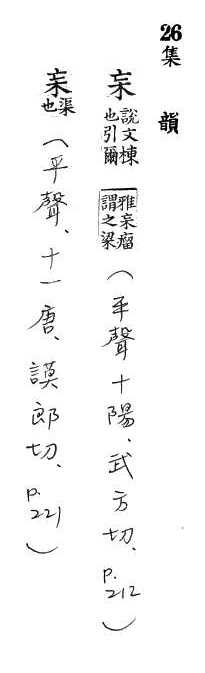 26 集韻
杗 說文棟也引爾雅杗廇謂之梁（平聲十陽、武方切、p.212）
杗 渠也（平聲、十一唐、謨郎切、p.221）